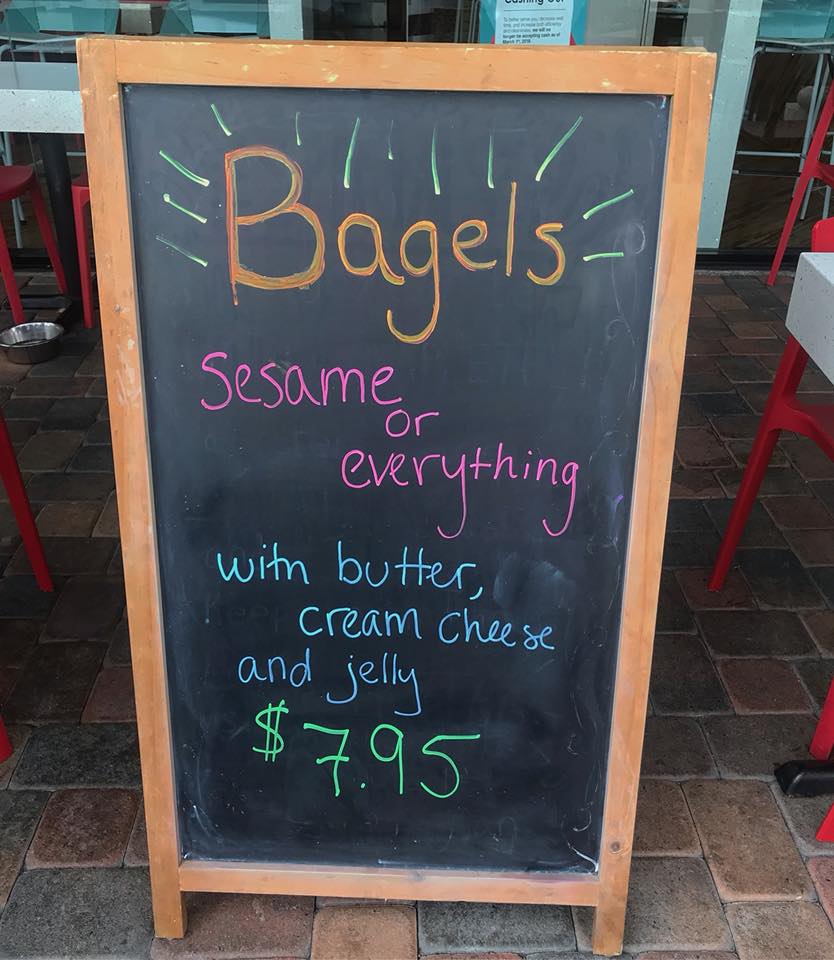 Cashing Out
To better serve you, decrease wait
time, and increase both efficiency
and cleanliness, we will no
longer be accepting cash as of
March 1st, 2018
Bagels
sesame
or
everything
with butter,
cream cheese
and jelly
$7.95